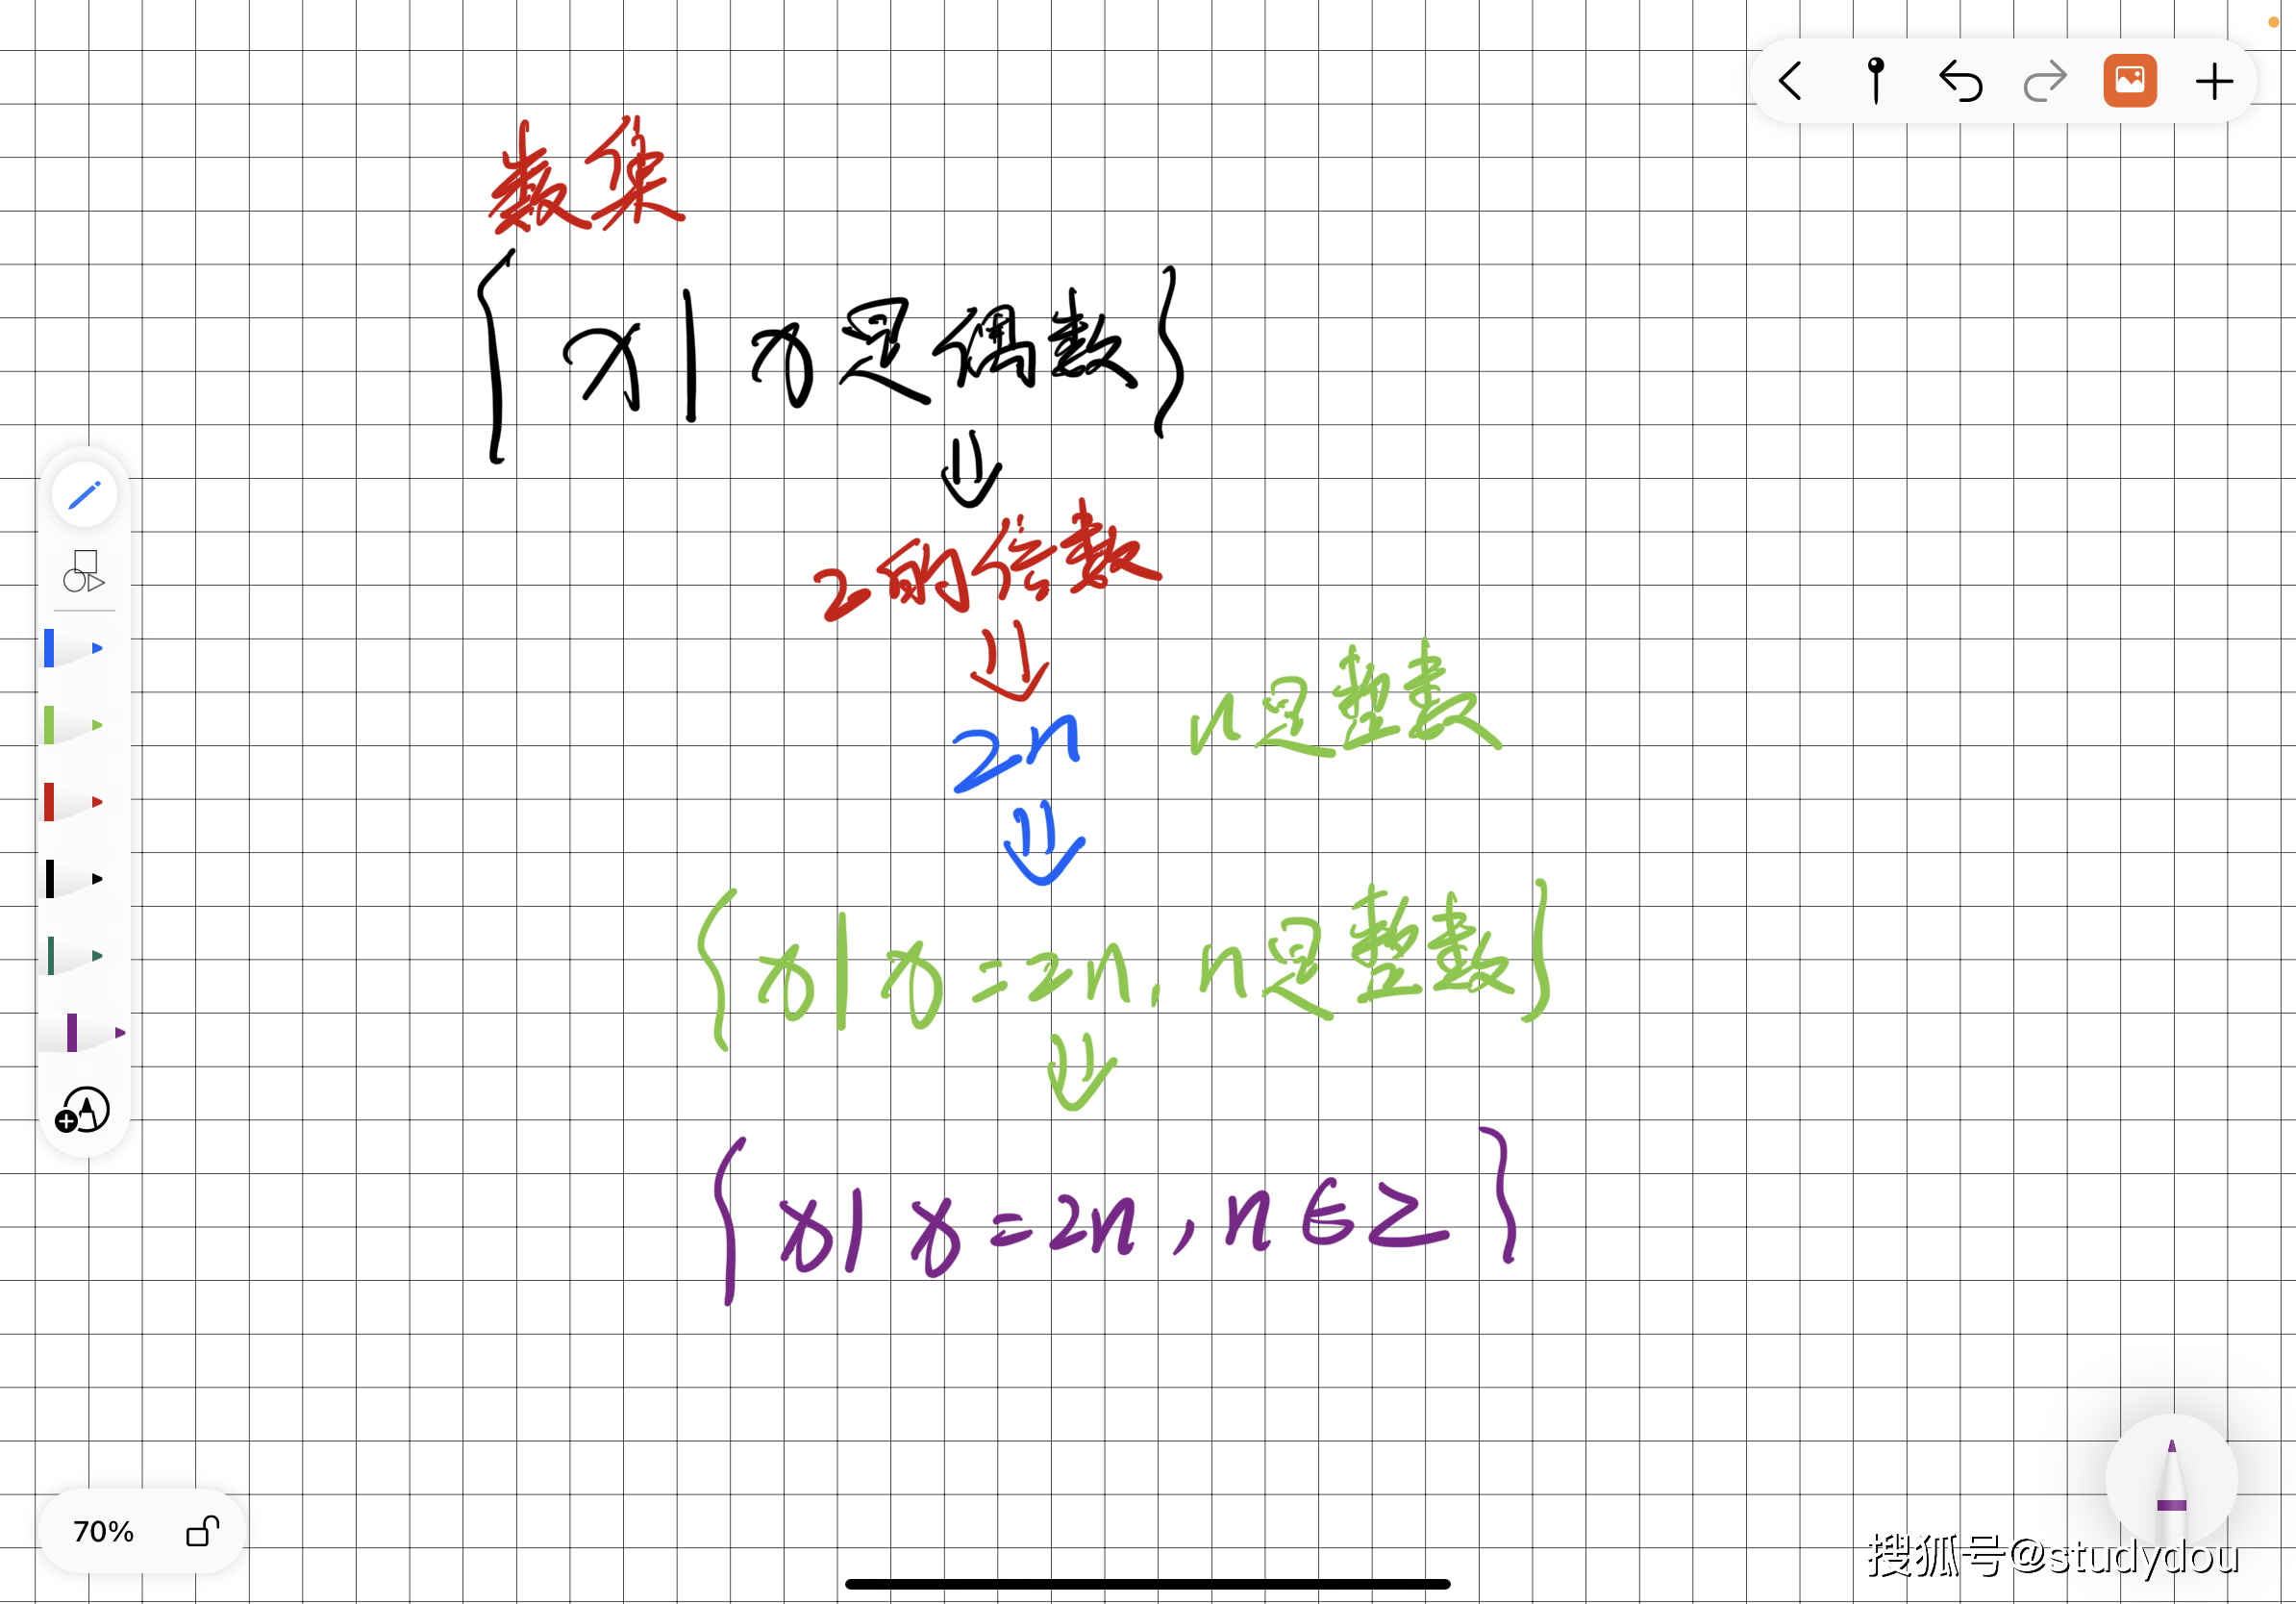 数集
{x|x是偶数}
⇓
2的倍数
⇓
2n n是整数
⇓
{x|x=2n, n是整数}
⇓
{x|x=2n, n∈Z}
70%
搜狐号@studydou